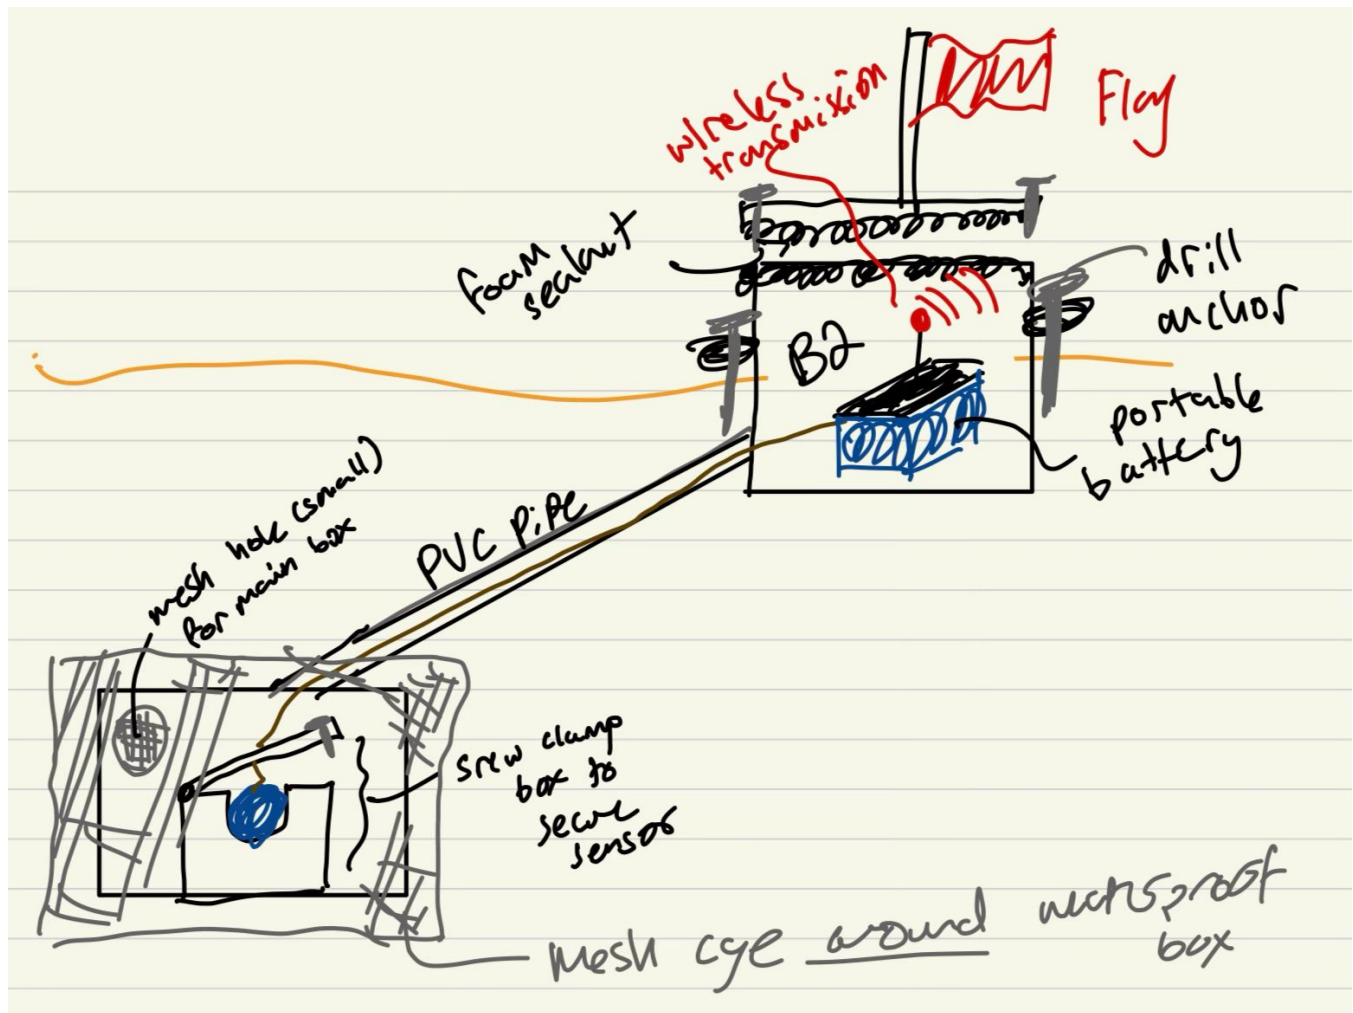 wireless
transmission
Flag
foam
sealant
drill
anchor
B2
portable
battery
mesh hole (small)
for main box
PVC Pipe
srew clamp
box to
secure
sensor
mesh cge around waterproof
box